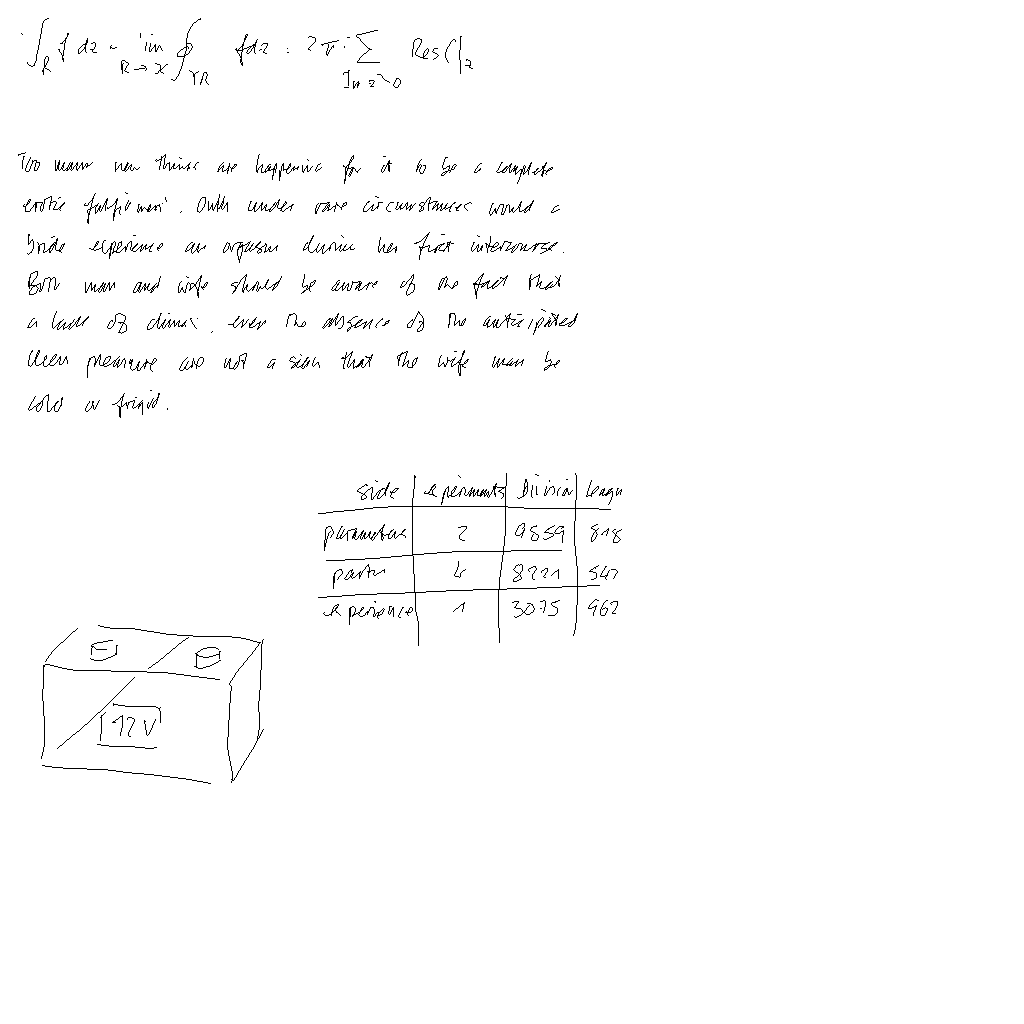 ∫_R f dz = lim_{R→∞} ∮_{γR} f dz = 2πi ∑_{Im z>0} Res(|z
Too many new things are happening for it to be a complete
erotic fulfilment. Only under rare circumstances would a
bride experience an orgasm during her first intercourse.
Both man and wife should be aware of the fact that
a lack of climax, even the absence of the anticipated
keen pleasure are not a sign that the wife may be
cold or frigid.
side experiments Division League
parameters 2 9859 818
party 4 8221 547
experience 1 3075 962
12V